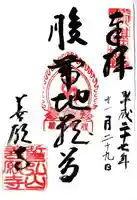 奉拝
平成二十七年
十一月二十九日
腹帯地蔵尊
善願寺